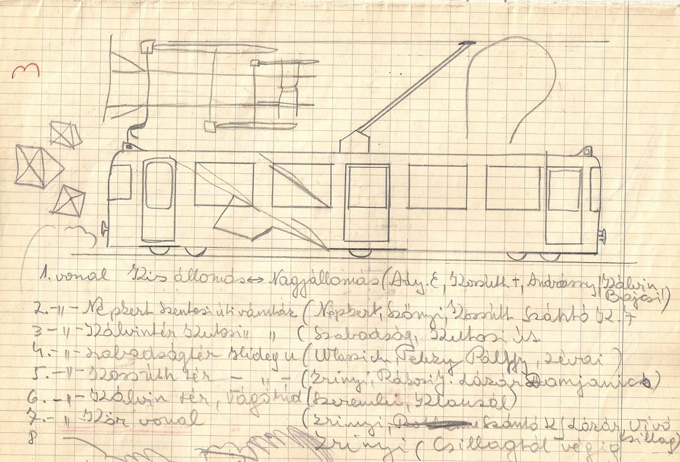 3
1. vonal Kis állomás ↔ Nagyállomás (Ady. E, Kossuth t, Andrássy, Kálvin,
Bajcsi)
2. -"- Népkert Szentesi úti vámház (Népkert, Szőnyi, Kossuth Szántó K. J
3 - " - Kálvintér Kutasi " " ( Szabadság, Kutasi és
4. - " - Szabadságtér Hideg u (Wlassich Pálffy, Lévai )
5. - " - Kossuth tér - " - (Zrínyi, Rákosi J. Lázár Damjanich)
6 - " - Kálvin tér, Vágóhíd (Szeremlei, Klauzál)
7. - " - Kör vonal (Zrínyi, Szántó K, Lázár, Vívó
Csillag)
8 Zrínyi ( Csillagtól végig